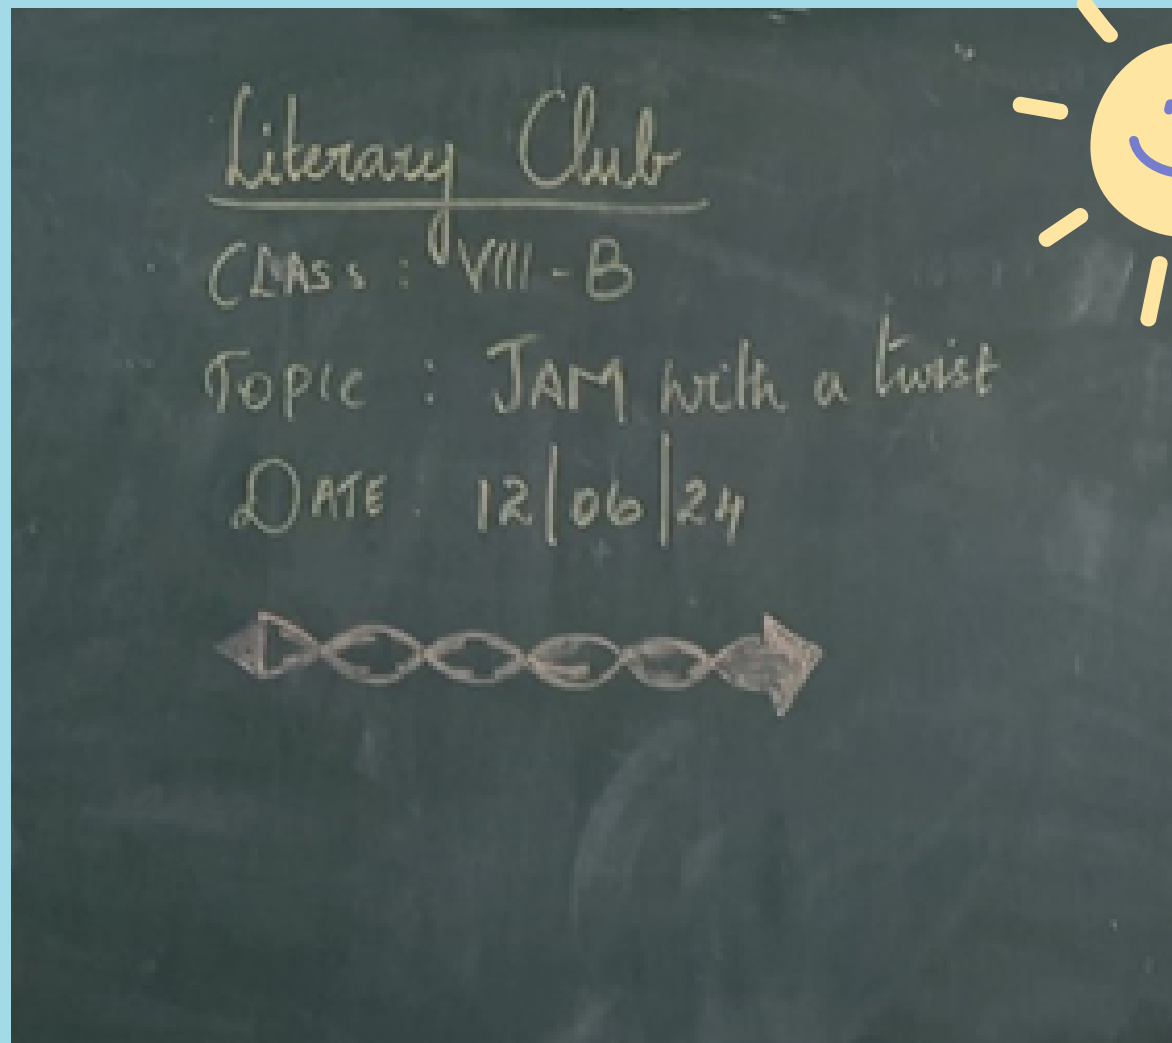 Literary Club
CLASS : VIII - B
TOPIC : JAM with a twist
DATE : 12|06|24